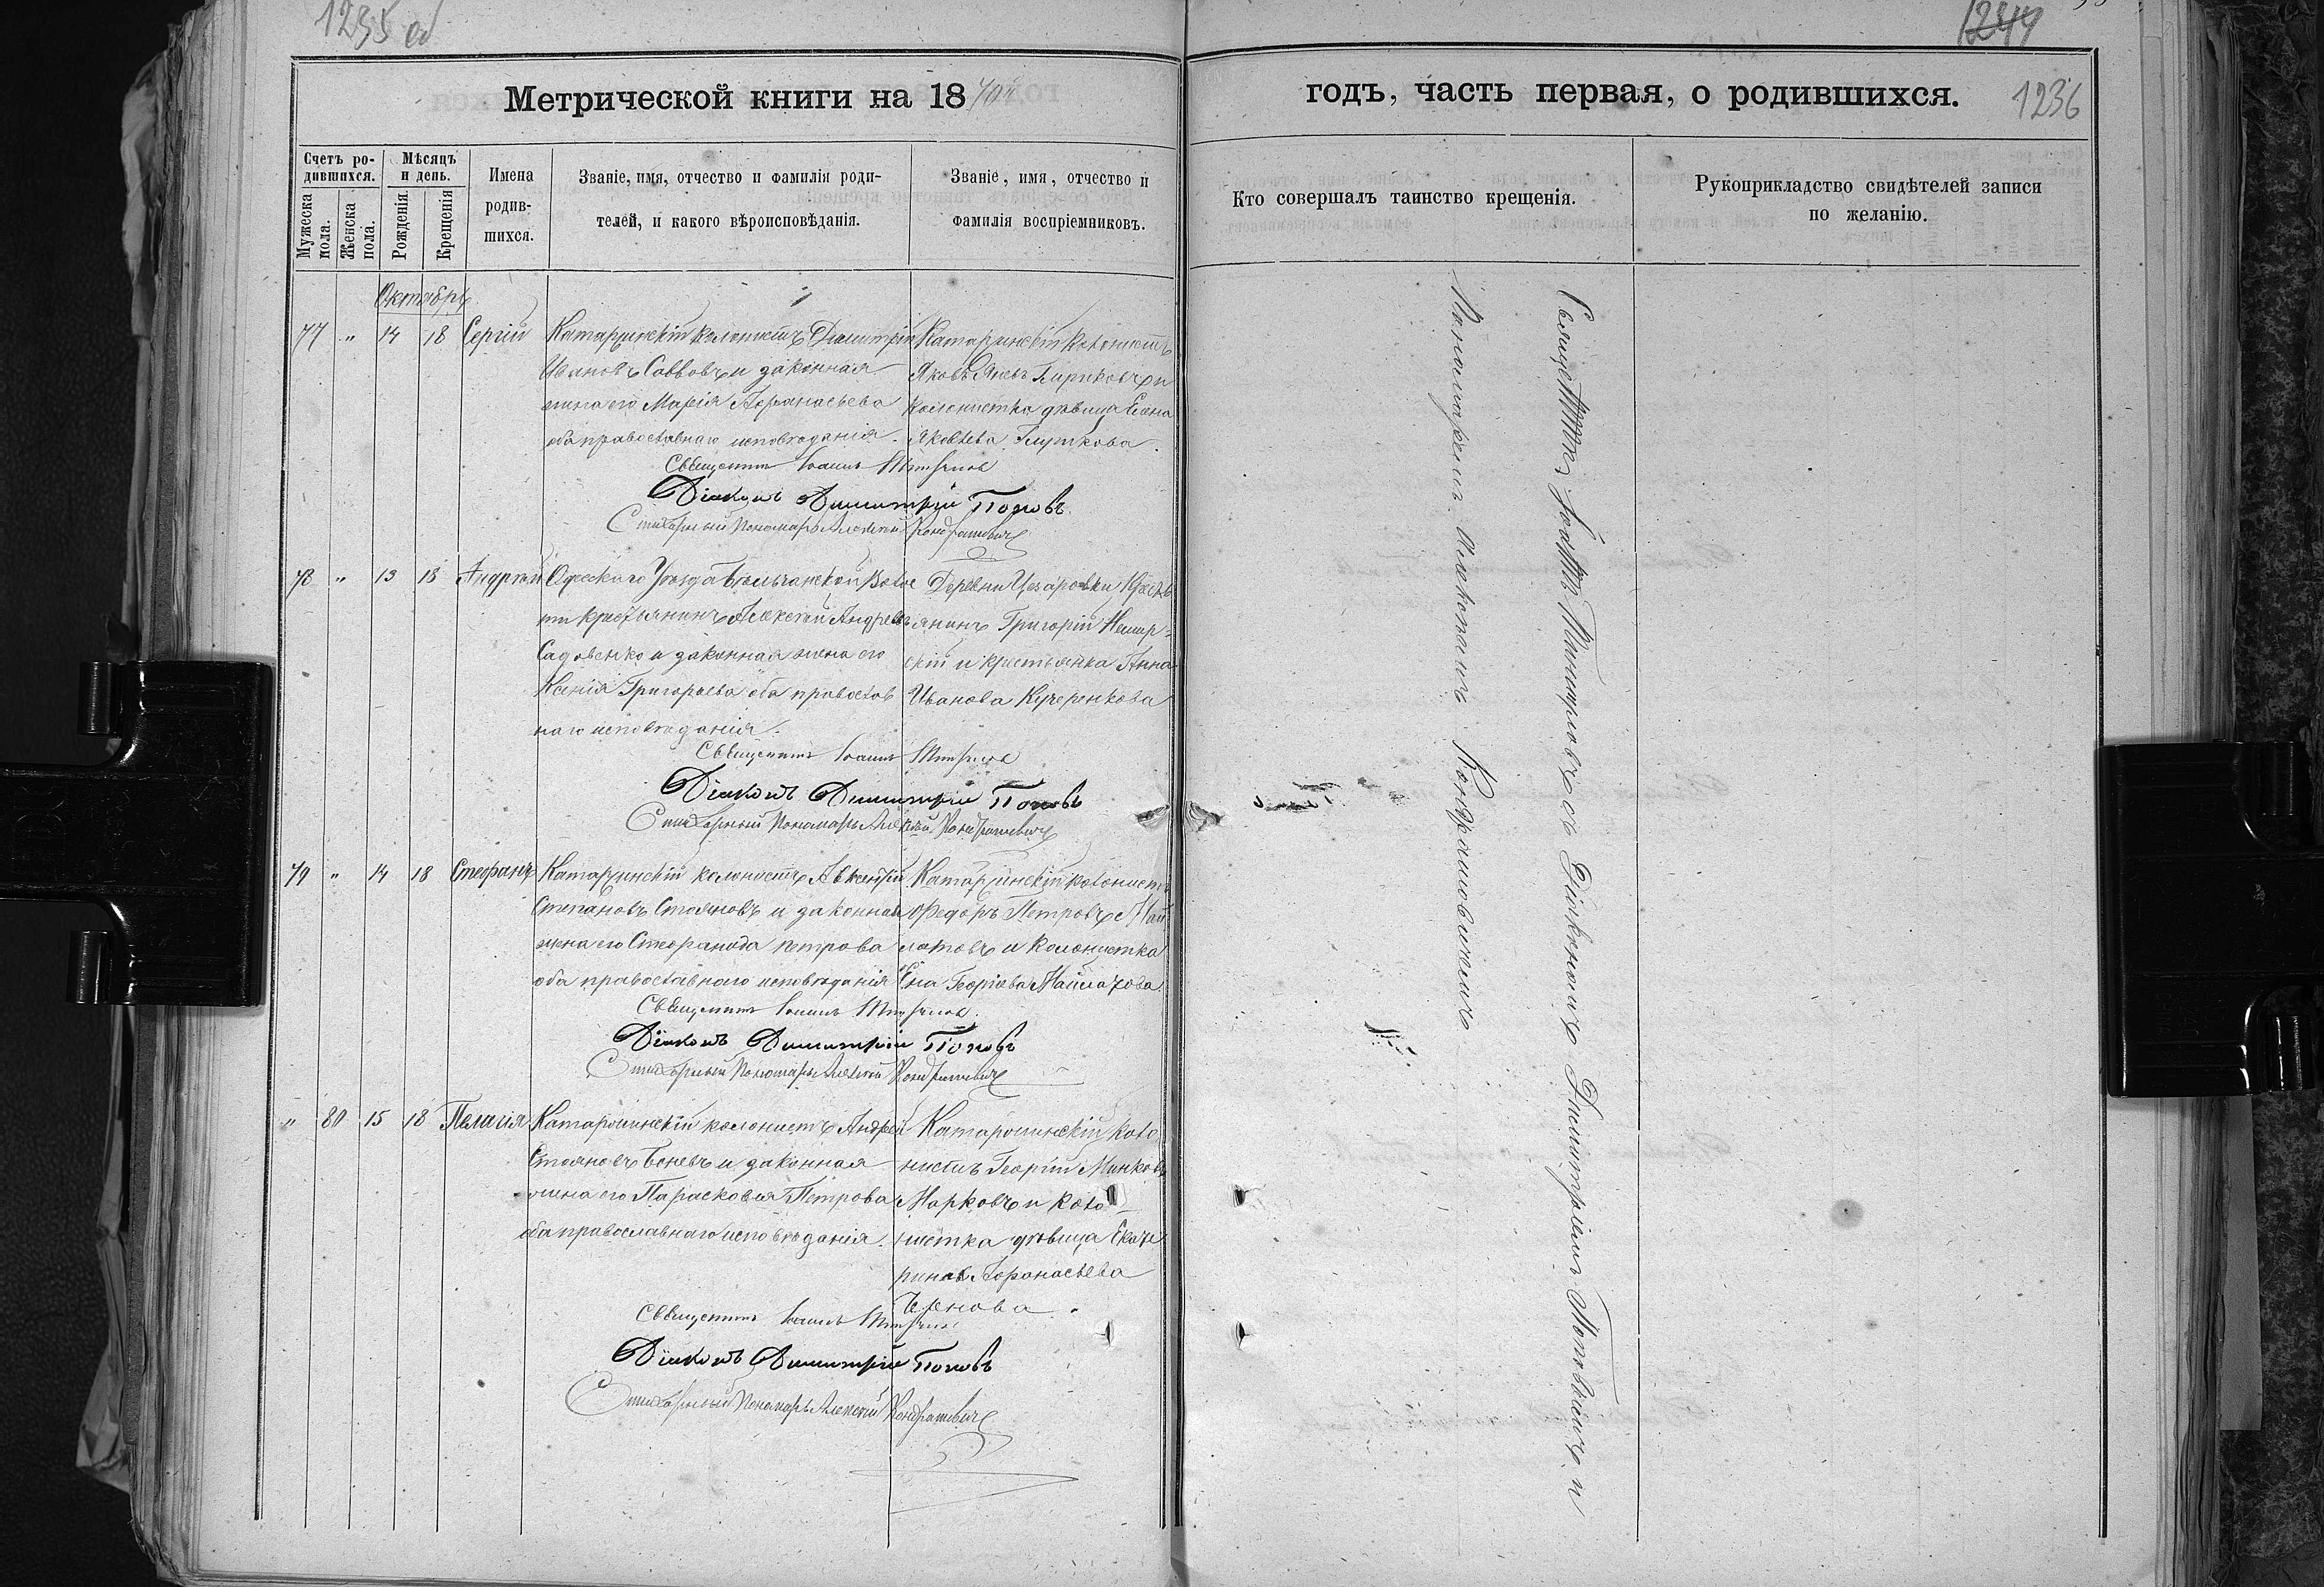 1235 об
1244
Метрической книги на 1870й
годъ, часть первая, о родившихся.
1236
Счетъ ро-
дившихся.
Мѣсяцъ
и день.
Мужеска
пола.
Женска
пола.
Рожденія.
Крещенія
Имена
родив-
шихся.
Званіе, имя, отчество и фамилія роди-
телей, и какого вѣроисповѣданія.
Званіе, имя, отчество и
фамилія воспріемниковъ.
Кто совершалъ таинство крещенія.
Рукоприкладство свидѣтелей записи
по желанію.
Октябрь
77 " 14 18 Сергій
Катаржинскій колонистъ Димитрій
Ивановъ Саввовъ и законная
жена его Марія Афанасьева
оба православнаго исповѣданія.
Катаржинскій колонистъ
Яковъ Яневъ и
колонистка дѣвица Елена
Яковлева
Священникъ Іоаннъ
Діаконъ Димитрій Поповъ
Стихарный Пономарь Алексѣй Кондрашевичъ
78 " 13 18 Андрей
Одесскаго Уѣзда Бѣльчанской Волос
ти крестьянинъ Алексѣй Андреевъ
Садовенко и законная жена его
Ксенія Григорьева оба православ
наго исповѣданія.
Деревни Цезаровки Крест
янинъ Григорій
скій и крестьянка Анна
Иванова Кучеренкова
Священникъ Іоаннъ
Діаконъ Димитрій Поповъ
Стихарный Пономарь Алексѣй Кондрашевичъ
79 " 14 18 Стефанъ
Катаржинскій колонистъ Авксентій
Степановъ Стояновъ и законная
жена его Стефанида Петрова
оба православнаго исповѣданія
Катаржинскій колонистъ
Федоръ Петровъ Май
латовъ и колонистка
Елена Георгіева
Священникъ Іоаннъ
Діаконъ Димитрій Поповъ
Стихарный Пономарь Алексѣй Кондрашевичъ
" 80 15 18 Пелагія
Катаржинскій колонистъ Андрей
Стояновъ Беневъ и законная
жена его Парасковія Петрова
оба православнаго исповѣданія.
Катаржинскій коло
нистъ Георгій Минковъ
Марковъ и коло
нистка дѣвица Екате
рина Афанасьева
Чернова.
Священникъ Іоаннъ
Діаконъ Димитрій Поповъ
Стихарный Пономарь Алексѣй Кондрашевичъ
Священникъ Іоаннъ съ Діакономъ Димитріемъ Поповымъ и
Пономаремъ Алексѣемъ Кондрашовичемъ